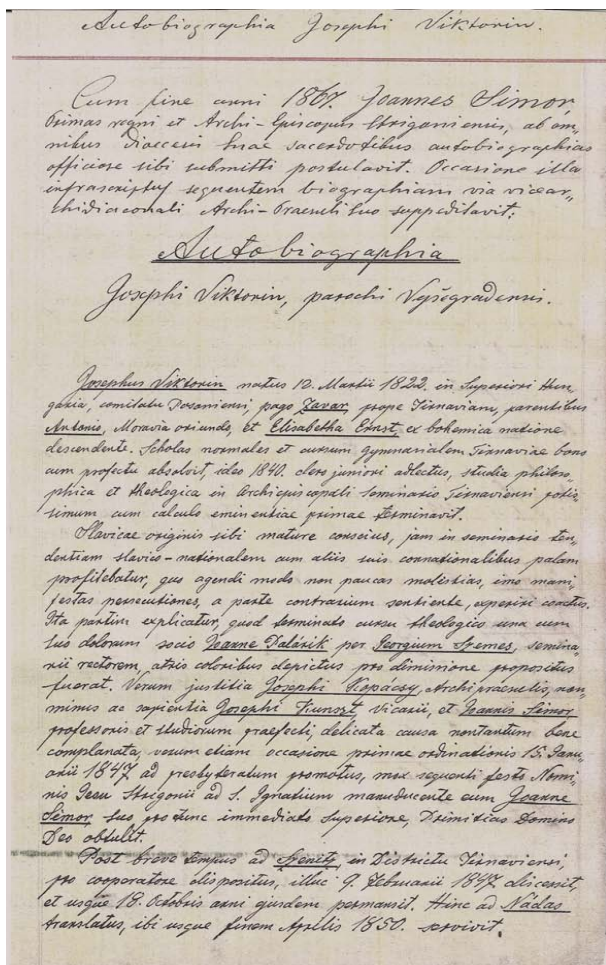 Autobiographia Josephi Viktorin.
Cum fine anni 1867. Joannes Simor
Primas regni et Archi-Episcopus Strigoniensis, ab om„
nibus Dioecesis suae sacerdotibus autobiographias
officiose sibi submitti postulavit. Occasione illa
infrascriptus sequentem biographiam via vicear„
chidiaconali Archi-Praesuli suo suppeditavit:
Autobiographia
Josephi Viktorin, parochi Vyšegradensis.
Josephus Viktorin natus 12. Martii 1822. in Superiori Hun„
garia, comitatu Posoniensi, pago Zavar, prope Tirnaviam, parentibus
Antonio, Moravia oriundo, et Elisabetha Ernst, ex bohemica natione
descendente. Scholas normales et cursum gymnasialem Tirnaviae bono
cum profectu absolvit, ideo 1840. clero juniori adlectus, studia philoso„
phica et theologica in Archiepiscopali Seminario Tirnaviensi potis„
simum cum calculo eminentiae primae terminavit.
Slavicae originis sibi mature conscius, jam in seminario ten„
dentiam slavico-nationalem cum aliis suis connationalibus palam
profitebatur, quo agendi modo non paucas molestias, imo mani„
festas persecutiones, a parte contrarium sentiente, experiri coactus.
Ita partim explicatur, quod terminato cursu theologico una cum
suo dolorum socio Joanne Palárik per Georgium Szemes, semina„
rii rectorem, atris coloribus depictus pro dimissione propositus
fuerat. Verum justitia Josephi Kopácsy, Archipraesulis, non
minus ac sapientia Josephi Kunszt, Vicarii, et Joannis Simor
professoris et studiorum praefecti, delicata causa nontantum bene
complanata, verum etiam occasione primae ordinationis 15. Janu„
arii 1847 ad presbyteratum promotus, mox sequenti festo Nomi„
nis Jesu Strigonii ad S. Ignatium manuducente eum Joanne
Simor suo pro tunc immediato superiore, Primitias Domino
Deo obtulit.
Post breve tempus ad Szenitz in Districtu Tirnaviensi
pro cooperatore dispositus, illuc 9. Februarii 1847 discessit,
et usque 18. Octobris anni ejusdem permansit. Hinc ad Nádas
translatus, ibi usque finem Aprilis 1850. servivit.